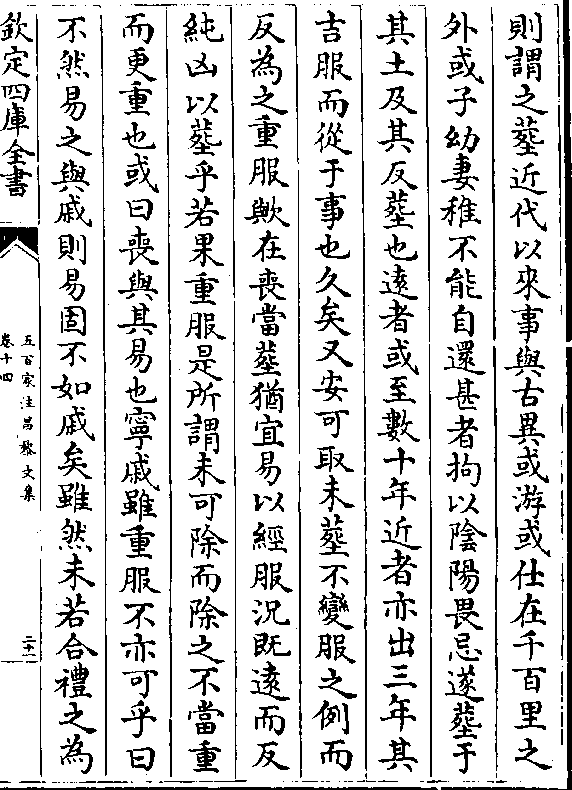 則謂之塟近代以來事與古異或游或仕在千百里之
外或子幼妻稚不能自還甚者拘以陰陽畏忌遂塟于
其土及其反塟也遠者或至數十年近者亦出三年其
吉服而從于事也久矣又安可取未塟不變服之例而
反為之重服歟在喪當塟猶宜易以輕服況既遠而反
純凶以塟乎若果重服是所謂未可除而除之不當重
而更重也或曰喪與其易也寧戚雖重服不亦可乎曰
不然易之與戚則易固不如戚矣雖然未若合禮之為
欽定四庫全書
五百家注昌黎文集
卷十四